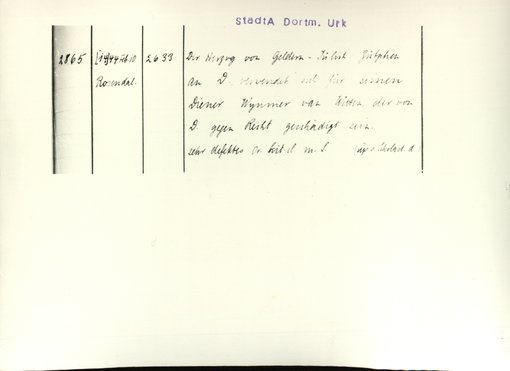 StadtA Dortm. Urk
2865 2633 Der Herzog von Geldern - Jülich Zütphen
Rosendal. an D. verwendet sich für seinen
Diener Wynmer van Witten, der von
D. gegen Recht geschädigt sein.
sehr defektes Or. m. S.